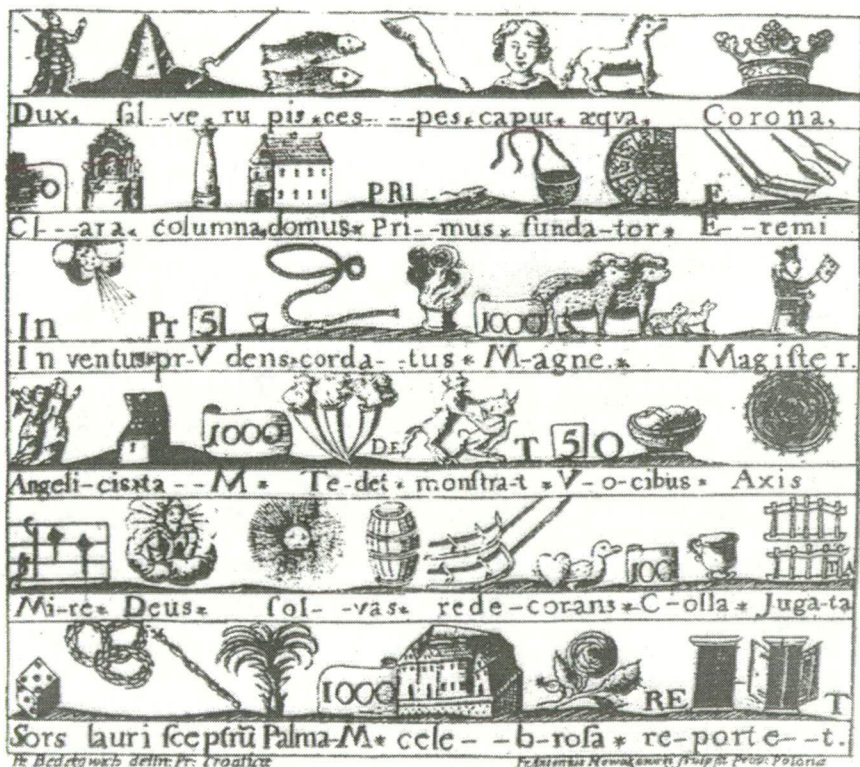 Dux. sal--ve. ru pis.ces---pes.caput. æqva. Corona,
O PRI E
Cl---ara. columna,domus* Pri--mus. funda-tor. E--remi
In Pr 5 1000
In ventus.pr-V dens.corda--tus * M-agne.* Magister.
1 1000 DE T 5 O
Angeli-cis.ta--M* Te-det. monstra-t *V-o-cibus* Axis
100 TA
Mi-re* Deus* sol--vas. rede-corans*C-olla* Juga-ta
1000 RE T
Sors lauri sceptrū Palma-M* cele--b-rosa* re-porte--t.
delin: Pr: Croaticæ Polona